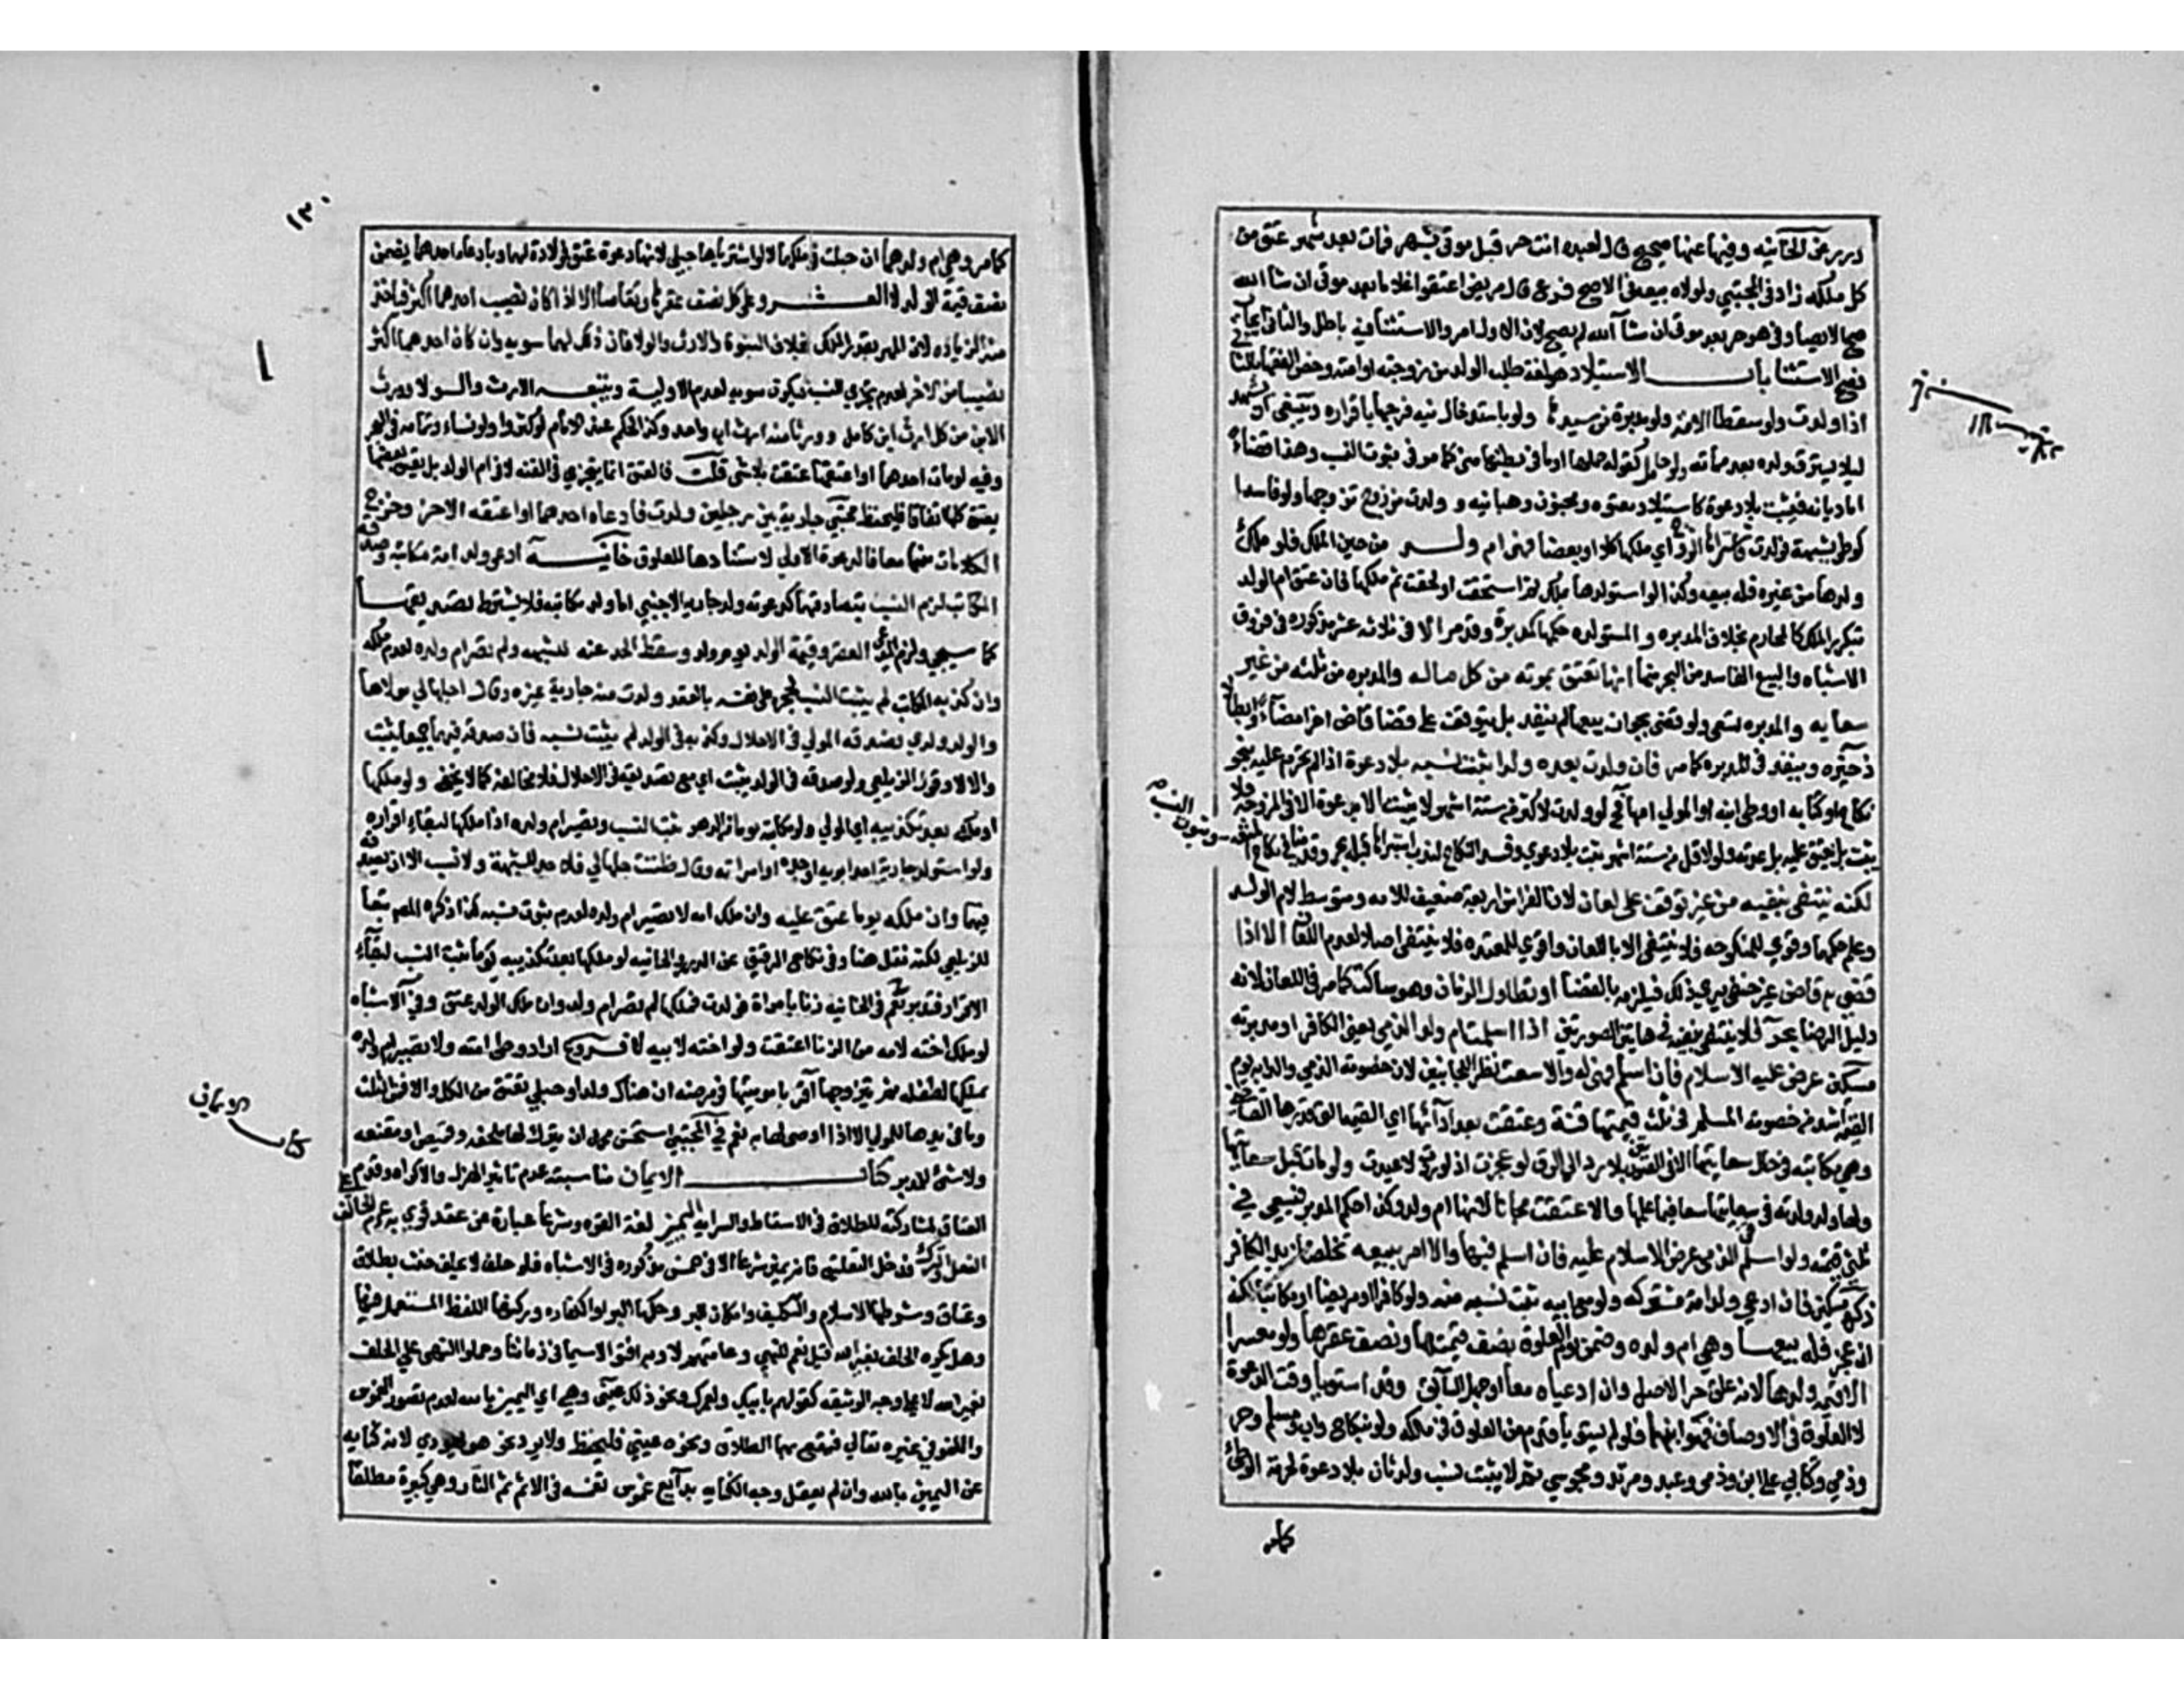 كل ملكه زاد في المجتبي ولولاه بيعه في الاصح فرع قال مريض اعتقوا غلامي بعد موتي ان شا الله
صح الايصا وفي هو حر بعد موتي ان شآ الله لم يصح لان الاول امر والاستثنا فيه باطل والثاني ايجاب
فصح الاستثنا باب الاستيلاد هو لغة طلب الولد من زوجته او امته وخصه الفقها بالثاني
اذا ولدت ولو سقطا الامة ولو مدبرة من سيدها ولو باستدخال منيه فرجها باقراره وينبغي ان يشهد
ليلا يسترق ولده بعد مماته ولو حاملا كقوله حملها او ما في بطنها مني كما مر في ثبوت النسب وهذا قضاء
اما ديانة فيثبت بلا دعوة كاستيلاد معتوه ومجنون وهبانيه او ولدت من زوج تزوجها ولو فاسدا
كوطئ بشبهة فولدت فاشتراها الزوج اي ملكها كلا او بعضا فهي ام ولد من حين الملك فلو ملك
ولدها من غيره فله بيعه وكذا لو استولدها بملك ثم استحقت او لحقت ثم ملكها فان عتق ام الولد
يتكرر بتكرر الملك كالمحارم بخلاف المدبره والمستولده حكمها كمدبرة وقد مر الا في ثلاثة عشر مذكوره في فروق
الاشباه والبيع الفاسد من البحر منها انها تعتق بموته من كل ماله والمدبره من ثلثه من غير
سعايه والمدبره تسعي ولو قضي بجواز بيعها لم ينفذ بل يتوقف علي قضا قاض اخر امضاء وابطالا
ذخيره وينفذ في المدبره كما مر فان ولدت بعده ولدا يثبت نسبه بلا دعوة اذا لم تحرم عليه بنحو
لكنه ينتفي بنفيه من غير توقف علي لعان لان الفراش اربعة ضعيف للامه ومتوسط لام الولد
وعلم حكمهما وقوي للمنكوحه فلا ينتفي الا باللعان واقوي للمعتده فلا ينتفي اصلا لعدم اللعان الا اذا
قضي به قاض غير حنفي يري ذلك فيلزمه بالقضا او تطاول الزمان وهو ساكت كما مر في اللعان لانه
دليل الرضا بحر فلا ينتفي بنفيه في هاتين الصورتين اذا اسلمت ام ولد الذمي يعني الكافر او مدبرته
مسكين عرض عليه الاسلام فان اسلم فهي له والا سعت نظرا للجانبين لان خصومة الذمي والدابة يوم
القيمة اشد من خصومة المسلم في ثلث قيمتها قنة وعتقت بعد ادآئها اي القيمة التي قدرها القاضي
وهي مكاتبه في حال سعايتها بلا رد الي الرق لو عجزت اذ لو ردت لاعيدت ولو مات قبل سعايتها
ولها ولد ولدته في سعايتها سعي فيما عليها والا عتقت مجانا لانها ام ولد وكذا حكم المدبر فيسعي في
ثلثي قيمته ولو اسلم قن الذمي عرض الاسلام عليه فان اسلم فبها والا امر ببيعه تخلصا من يد الكافر
ذكره مسكين فان ادعي ولد امة مشتركه ولو مع ابيه ثبت نسبه منه ولو كافرا او مريضا او مكاتبا لكنه
ان عجز فله بيعها وهي ام ولده وضمن يوم العلوق نصف قيمتها ونصف عقرها ولو معسرا
لا قيمة ولدها لانه علق حر الاصل وان ادعياه معا او جهل السابق وقد استويا وقت الدعوة
لا العلوق في الاوصاف فهو ابنهما فلو لم يستويا قدم من العلوق في ملكه ولو بنكاح واب ومسلم وحر
وذمي وكتابي علي ابن وذمي وعبد ومرتد ومجوسي ثم لا يثبت نسب ولد ثان بلا دعوة لحرمة الوطئ
كما مر
١٣٠
كما مر وهي ام ولدهما ان حبلت في ملكهما لا لو اشترياها حبلي لانها دعوة عتق فولاوه لهما وبادعاء احدهما يضمن
نصف قيمة الولد لا العقر وعلي كل نصف عقرها وتقاصا الا اذا كان نصيب احدهما اكثر فياخذ
منه الزياده لان المهر بقدر الملك بخلاف البنوة والارث والولا فان ذلك لهما سويه وان كان احدهما اكثر
نصيبا من الاخر لعدم تجزي النسب فيكون سويه لعدم الاولية ويتبعه الارث والولا وورث
الابن من كل ارث ابن كامل وورثا منه ارث اب واحد وكذا الحكم عند الامام لو كثروا ولو نساء وتمامه في البحر
وفيه لو مات احدهما او اعتقها عتقت بلا شي قلت فالعتق انما يتجزي في القنه لا في ام الولد بل يعتق بعضها
يعتق كلها اتفاقا فليحفظ مجتبي جارية بين رجلين ولدت فادعاه احدهما او اعتقه الاخر وخرج
الكلامان منهما معا فالدعوة اولي لاستنادها للعلوق خانيه ادعي ولد امة مكاتبه وصدقه
المكاتب لزم النسب بتصادقهما كدعوته ولد جارية الاجنبي اما ولد مكاتبه فلا يشترط تصديقها
كما سيجي ولزم المدعي العقر وقيمة الولد يوم ولد وسقط الحد عنه للشبهه ولم تصر ام ولده لعدم ملكه
وان كذبه المكاتب لم يثبت النسب لحجره علي نفسه بالعقد ولدت منه جارية غيره وقال احلها لي مولاها
والولد ولدي فصدقه المولي في الاحلال وكذبه في الولد لم يثبت نسبه فان صدقه فيهما جميعا يثبت
والا لا وقول الزيلعي ولو صدقه في الولد يثبت اي مع تصديقه في الاحلال فلا مخالفة كما لا يخفي ولو ملكها
او ملكه بعد تكذيبه اي المولي ولو مكاتبه يوما من الدهر ثبت النسب وتصير ام ولده اذا ملكها لبقاء اقراره
ولو استولد جارية احد ابويه او جده او امراته وقال ظننت حلها لي فلا حد للشبهة ولا نسب الا ان يصدقه
فيهما وان ملكه يوما عتق عليه وان ملك امه لا تصير ام ولده لعدم ثبوت نسبه كذا ذكره المصم تبعا
للزيلعي لكنه نقل هنا وفي نكاح الرقيق عن الدرر والخانيه لو ملكها بعد تكذيبه يوما ثبت النسب لبقاء
الاقرار فتدبر نعم في الخانيه زنا بامراة فولدت فملكها لم تصر ام ولد وان ملك الولد عتق وفي الاشباه
لو ملك اخته لامه من الزنا اعتقت ولو اخته لابيه لا فروع اراد وطئ امته ولا تصير ام ولده
يملكها لطفله ثم يتزوجها اقر بامومتها في مرضه ان هناك ولدا وحبلي تعتق من الكل والا فمن الثلث
وما في يدها للمولي الا اذا اوصي لها به نعم في المجتبي استحسن محمد ان يترك لها ملحفه وقميص ومقنعه
ولا شئ للمدبر كتاب الايمان مناسبته عدم تاثير الهزل والاكراه وقدم
العتاق لمشاركته للطلاق في الاسقاط والسرايه اليمين لغة القوه وشرعا عبارة عن عقد قوي به عزم الحالف علي
الفعل او الترك فدخل التعليق فانه يمين شرعا الا في خمس مذكوره في الاشباه فلو حلف لا يحلف حنث بطلاق
وعتاق وشرطها الاسلام والتكليف وامكان البر وحكمها البر او الكفاره وركنها اللفظ المستعمل فيها
وهل يكره الحلف بغير الله قيل نعم للنهي وعامتهم لا وبه افتوا لاسيما في زماننا وحملوا النهي علي الحلف
بغير الله لا علي وجه الوثيقه كقولهم بابيك ولعمرك ونحو ذلك عيني وهي اي اليمين بالله لعدم تصور الغموس
واللغو في غيره تعالي فيقع بهما الطلاق ونحوه عيني فليحفظ ولا يرد نحو هو يهودي لانه كنايه
عن اليمين بالله وان لم يعقل وجه الكنايه بدآئع غموس تغمسه في الاثم ثم النار وهي كبيرة مطلقا
كتاب الايمان